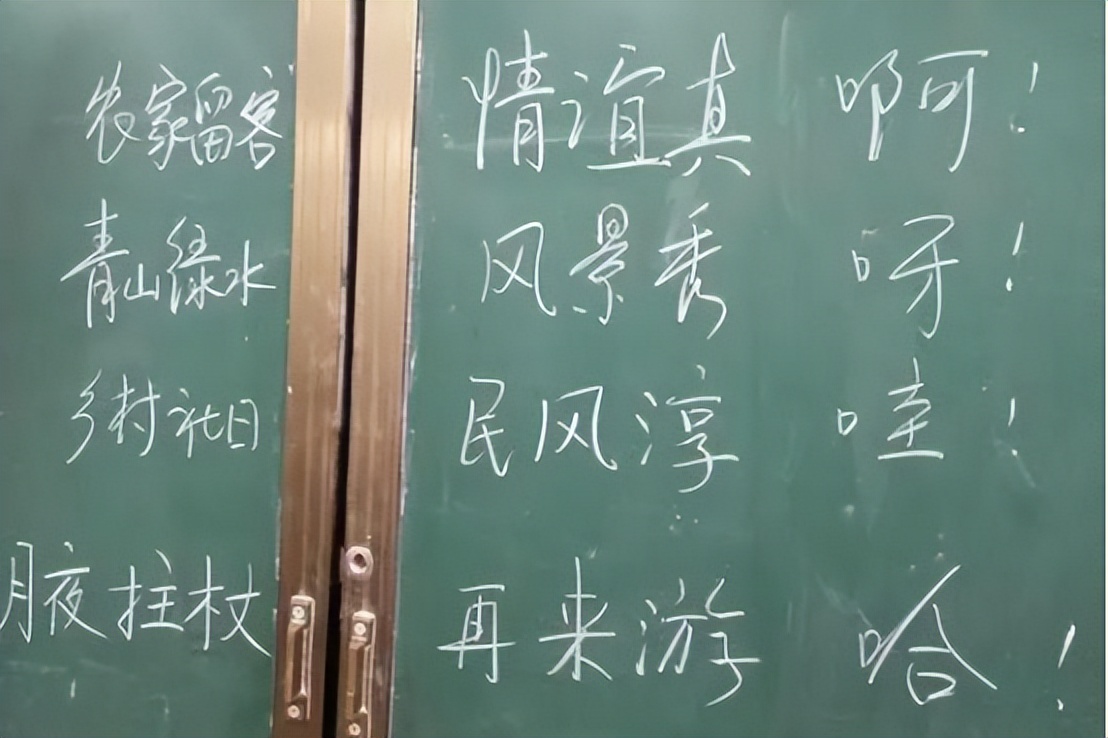 农家留客 情谊真 啊!
青山绿水 风景秀 呀!
乡村社日 民风淳 哇!
月夜拄杖 再来游 哈!